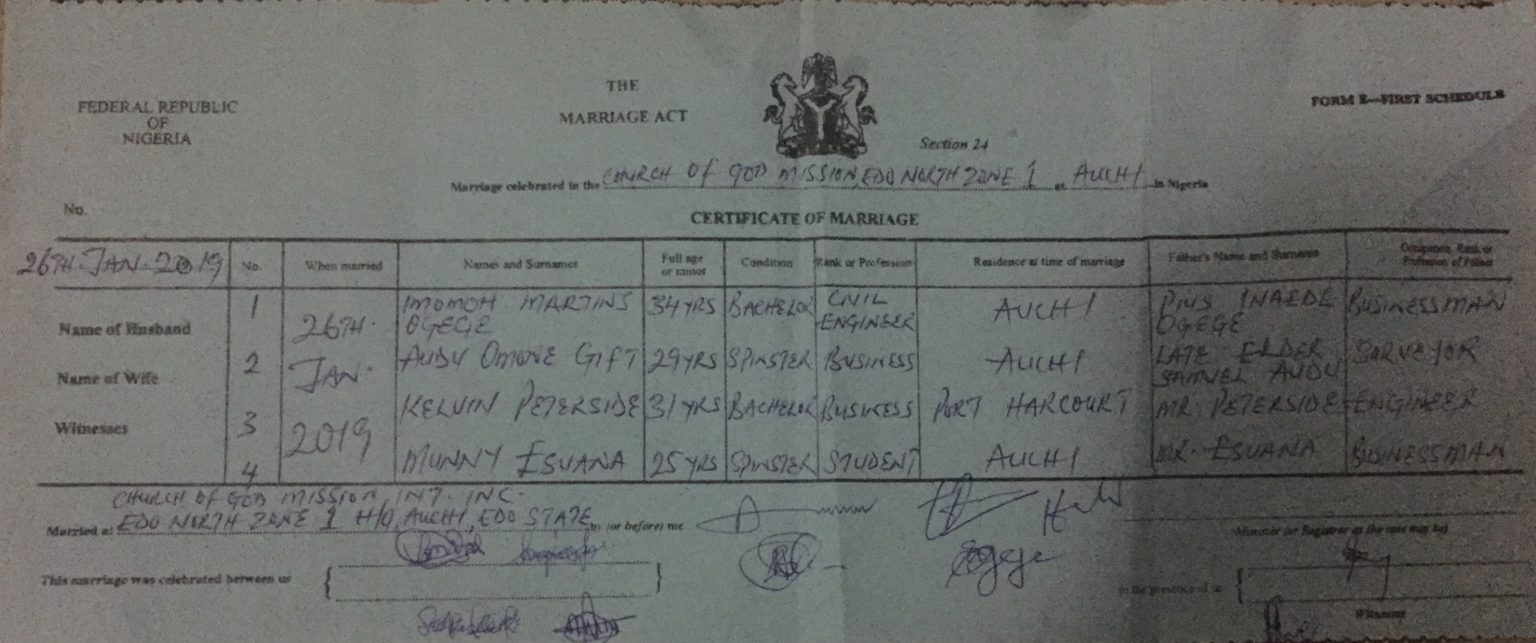 FEDERAL REPUBLIC
OF
NIGERIA
THE
MARRIAGE ACT
Section 24
FORM E—FIRST SCHEDULE
Marriage celebrated in the CHURCH OF GOD MISSION, EDO NORTH ZONE 1 at AUCHI in Nigeria
No.
CERTIFICATE OF MARRIAGE
26TH. JAN. 2019 No. When married Names and Surnames Full age or minor Condition Rank or Profession Residence at time of marriage Father's Name and Surname Occupation, Rank or Profession of Father
Name of Husband 1 26TH. IMOMOH MARTINS OGEGE 34YRS BACHELOR CIVIL ENGINEER AUCHI PIUS INAEDE OGEGE BUSINESSMAN
Name of Wife 2 JAN. AUDU OMONE GIFT 29YRS SPINSTER BUSINESS AUCHI LATE ELDER SAMUEL AUDU SURVEYOR
Witnesses 3 2019 KELVIN PETERSIDE 31YRS BACHELOR BUSINESS PORT HARCOURT MR. PETERSIDE ENGINEER
4 MUNNY ESUANA 25YRS SPINSTER STUDENT AUCHI MR. ESUANA BUSINESSMAN
CHURCH OF GOD MISSION INT. INC.
Married at EDO NORTH ZONE 1 H/Q, AUCHI, EDO STATE by (or before) me
Minister (or Registrar as the case may be)
This marriage was celebrated between us
in the presence of us
Witnesses